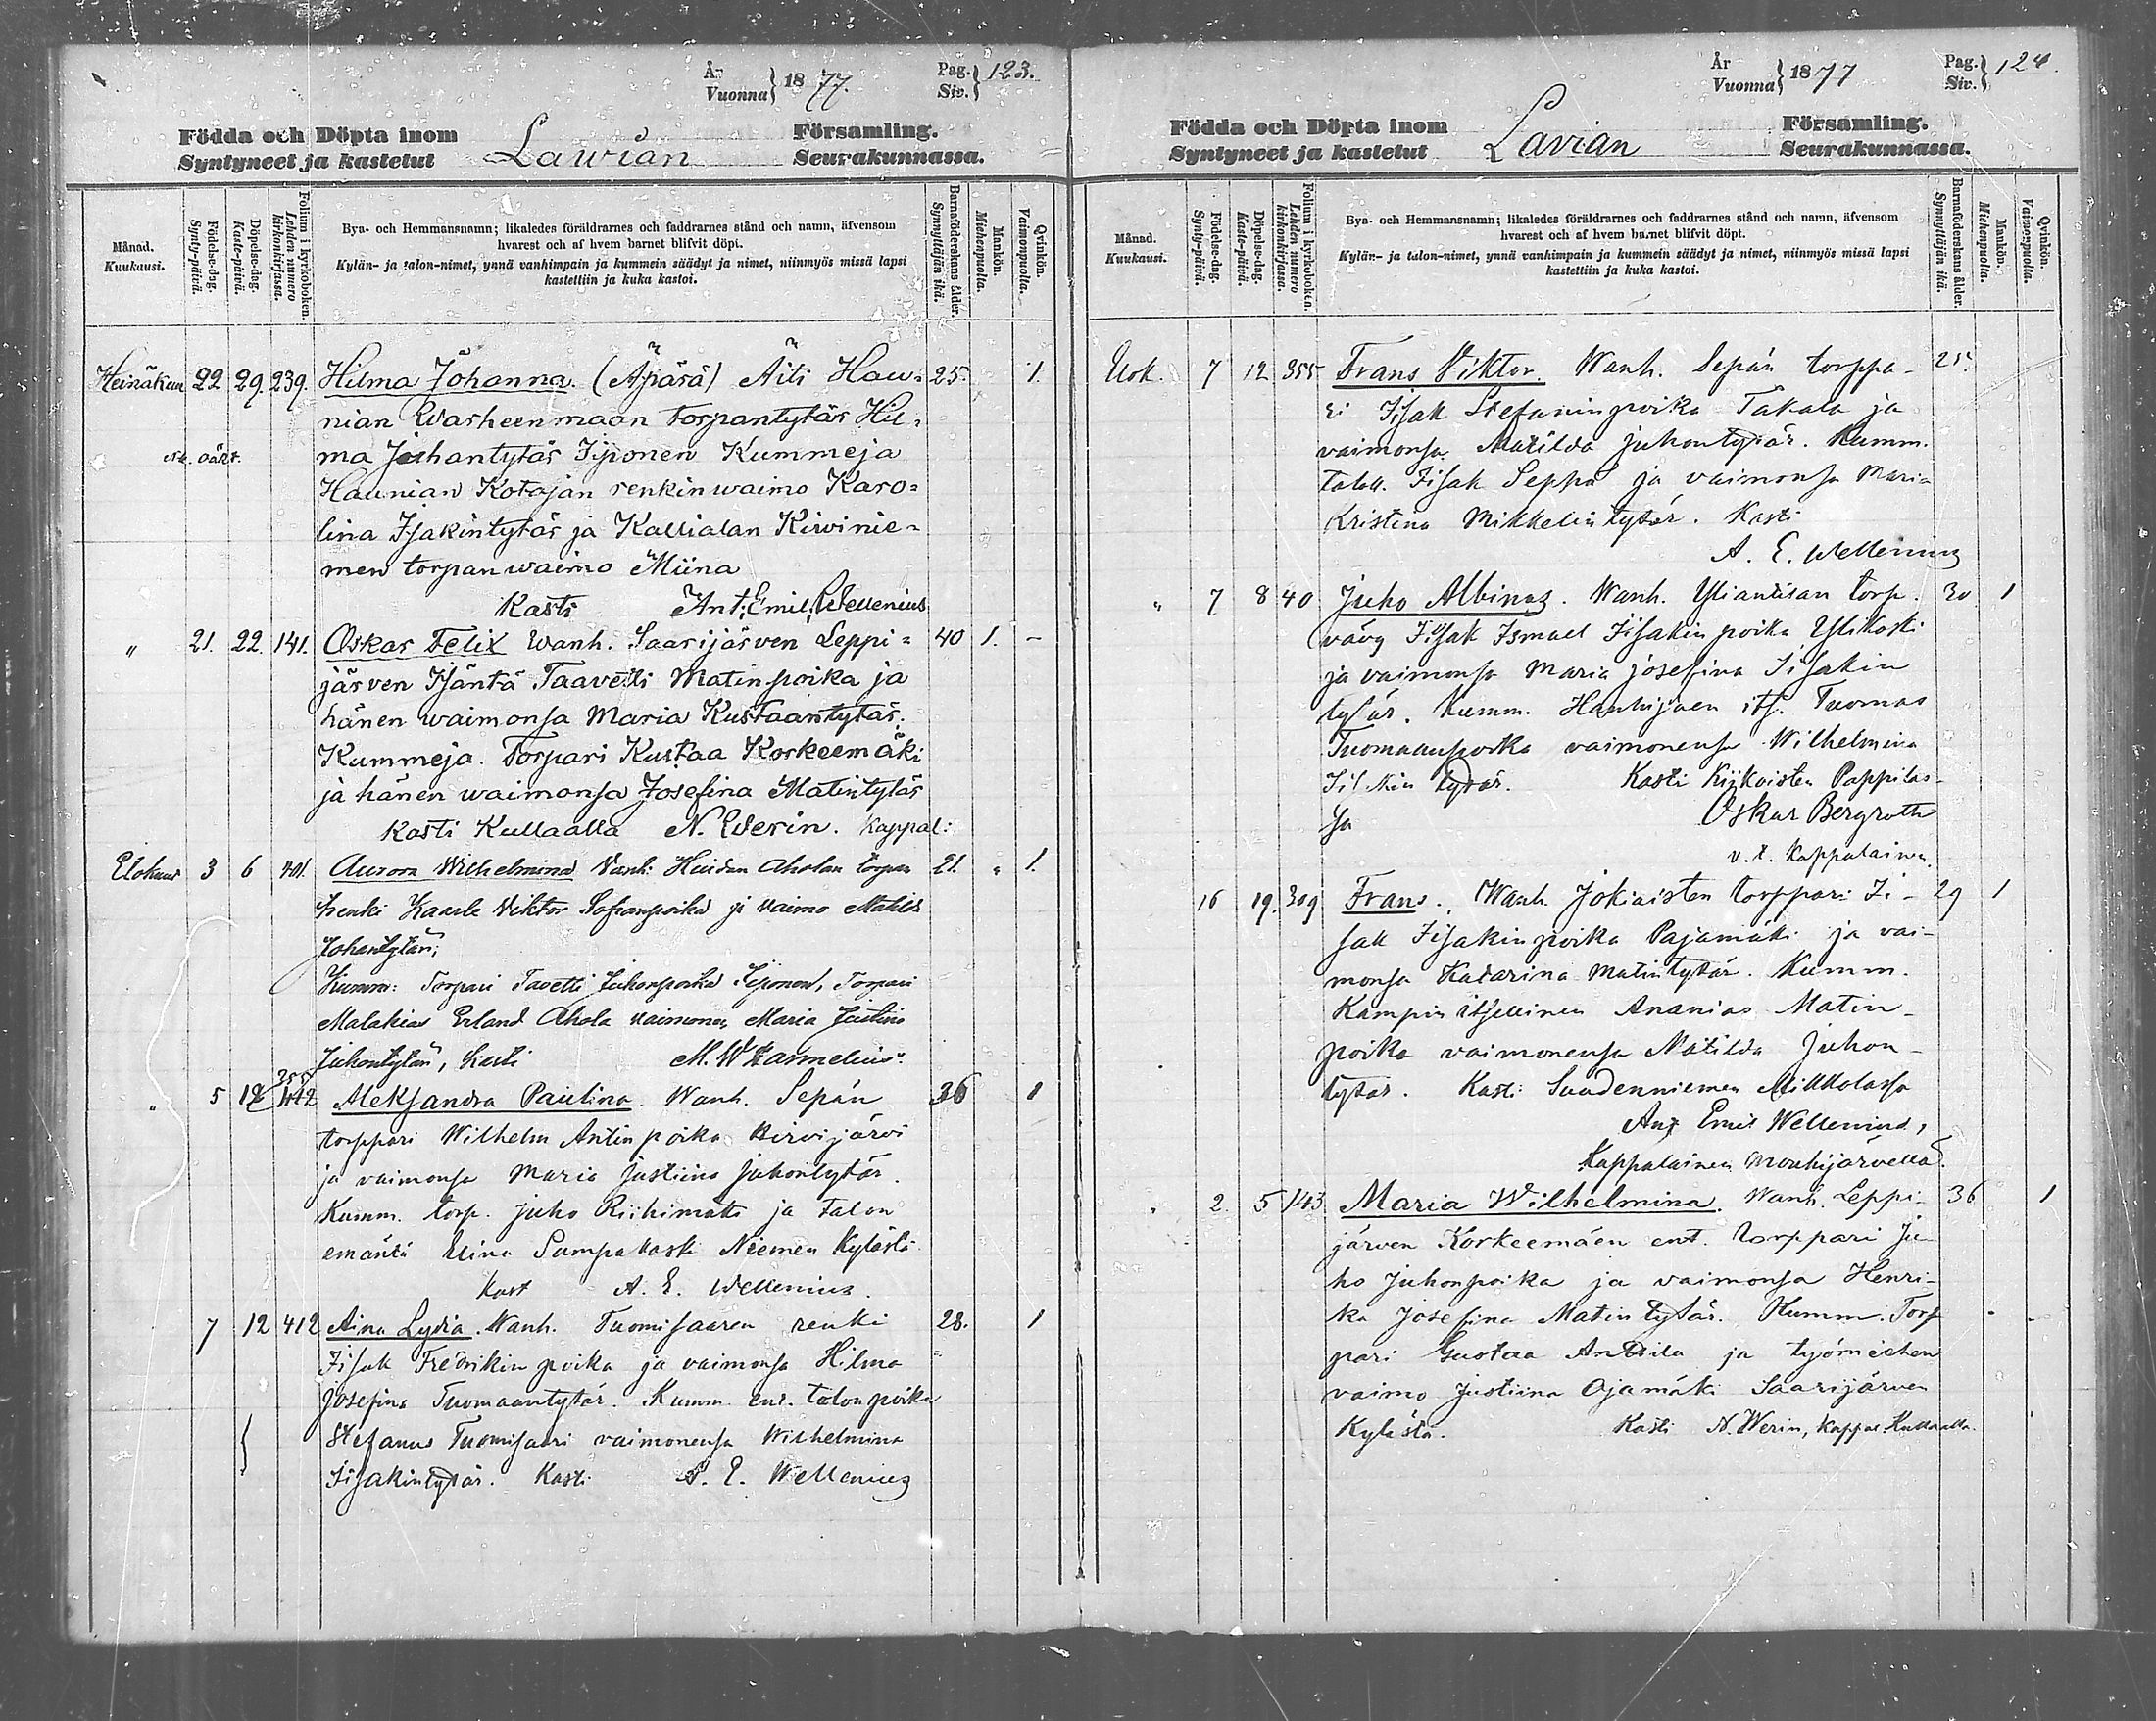 År
Vuonna } 1877. Pag.
Siv. } 123.
Födda och Döpta inom Församling.
Syntyneet ja kastetut Lawian Seurakunnassa.
Månad.
Kuukausi.
Födelse-dag.
Synty-päivä.
Döpelse-dag.
Kaste-päivä.
Folium i kyrkoboken.
Lehden numero kirkonkirjassa.
Bya- och Hemmansnamn; likaledes föräldrarnes och faddrarnes stånd och namn, äfvensom
hvarest och af hvem barnet blifvit döpt.
Kylän- ja talon-nimet, ynnä vanhimpain ja kummein säädyt ja nimet, niinmyös missä lapsi
kastettiin ja kuka kastoi.
Barnaföderskans ålder.
Synnyttäjän ikä.
Mankön.
Miehenpuolta.
Qvinkön.
Vaimonpuolta.
Heinäkuu 22 29. 239. Hilma Johanna. (Äpärä) Äiti Hau= 25. 1.
nian Warheenmaan torpantytär Hil=
ma Juhantytär Iijonen Kummeja
Haunian Kotajan renkinwaimo Karo=
lina Isakintytär ja Kallialan Kiwinie=
men torpanwaimo Miina
Kasti Ant. Emil. Wellenius
" 21. 22. 141. Oskar Felix Wanh. Saarijärven Leppi= 40 1. -
järven Isäntä Taavetti Matinpoika ja
hänen waimonsa Maria Kustaantytär.
Kummeja. Torpari Kustaa Korkeemäki
ja hänen waimonsa Josefina Matintytär
Kasti Kullaalla N. Werin. Kappal:
Elokuus 3 6 401. Aurora Wilhelmina Vanh: Huidan Aholan torpan 21. " 1.
renki Kaarle Viktor ja vaimo Matilda
Johantytär;
Kumm: Torpari Tavetti Juhonpoika Iijonen, Torpari
Malakias Erland Ahola vaimonen Maria Justina
Juhontytär, Kasti M. W. Stammelius.
" 5 12 355 412 Aleksandra Paulina. Wanh. Sepän 36 1
torppari Wilhelm Antinpoika Kirvijärvi
ja vaimonsa Maria Justiina Juhontytär.
Kumm. torp. Juho Riihimatti ja talon
emäntä Miina Sampakoski Niemen Kylästä
Kast A. E. Wellenius.
7 12 412 Aina Lydia. Wanh. Tuomisaaren renki 28. 1
Iisak Fredrikinpoika ja vaimonsa Hilma
Josefina Tuomaantytär. Kumm. ent. talonpoika
Stefanus Tuomisaari vaimonensa Wilhelmina
Iisakintytär. Kasti A. E. Wellenius
År
Vuonna } 1877 Pag.
Siv. } 124.
Födda och Döpta inom Församling.
Syntyneet ja kastetut Lavian Seurakunnassa.
Månad.
Kuukausi.
Födelse-dag.
Synty-päivä.
Döpelse-dag.
Kaste-päivä.
Folium i kyrkoboken.
Lehden numero kirkonkirjassa.
Bya- och Hemmansnamn; likaledes föräldrarnes och faddrarnes stånd och namn, äfvensom
hvarest och af hvem barnet blifvit döpt.
Kylän- ja talon-nimet, ynnä vanhimpain ja kummein säädyt ja nimet, niinmyös missä lapsi
kastettiin ja kuka kastoi.
Barnaföderskans ålder.
Synnyttäjän ikä.
Mankön.
Miehenpuolta.
Qvinkön.
Vaimonpuolta.
Elok. 7 12 355 Frans Viktor. Wanh. Sepän torppa- 25.
ri Iisak Stefaninpoika Takala ja
vaimonsa Matilda Juhontytär. Kumm.
taloll. Iisak Seppä ja vaimonsa Maria
Kristina Mikkelintytär. Kasti
A. E. Wellenius
" 7 8 40 Juho Albinus. Wanh. Yliantilan torp. 30 1
vävy Iisak Ismael Iisakinpoika Ylikoski
ja vaimonsa Maria Josefina Iisakin
tytär. Kumm. Hanhijoen its. Tuomas
Tuomaanpoika vaimonensa Wilhelmina
tytär. Kasti Kiikoisten Pappilas-
sa Oskar Bergroth
v. t. Kappalainen.
16 19. 309 Frans. Wanh. Jokiaisten torppari Ii- 29 1
sak Iisakinpoika Pajamäki ja vai-
monsa Katarina Matintytär. Kumm.
Kampin itsellinen Ananias Matin-
poika vaimonensa Matilda Juhon-
tytär. Kasti Suodenniemen Mikkolassa
Ant Emil Wellenius,
Kappalainen Mouhijärvellä.
" 2. 5 143 Maria Wilhelmina. Wanh. Leppi- 36 1
järven Korkeemäen ent. torppari Ju-
ho Juhonpoika ja vaimonsa Henri-
ka Josefina Matintytär. Kumm. Torp
pari Gustaa Anttila ja työmiehen
vaimo Justiina Ojamäki Saarijärven
Kylästä. Kasti N. Werin, Kappal. Kullaalla.